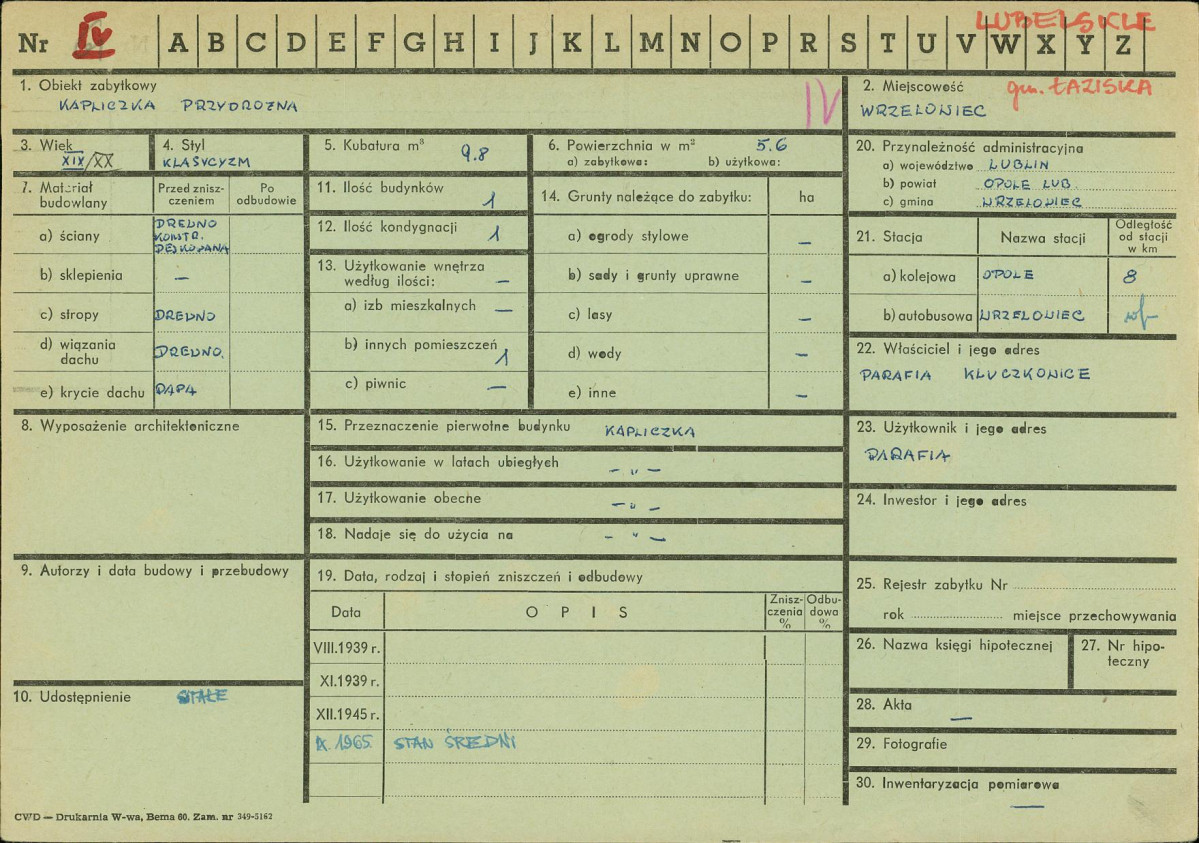 LUBELSKIE
Nr IV A B C D E F G H I J K L M N O P R S T U V W X Y Z
1. Obiekt zabytkowy
KAPLICZKA PRZYDROŻNA
IV
2. Miejscowość
gm. ŁAZISKA
WRZELOWIEC
3. Wiek
XIX/XX
4. Styl
KLASYCYZM
5. Kubatura m³
9.8
6. Powierzchnia w m²
5.6
a) zabytkowa: b) użytkowa:
20. Przynależność administracyjna
a) województwo LUBLIN
b) powiat OPOLE LUB.
c) gmina WRZELOWIEC
7. Materiał budowlany
Przed zniszczeniem
Po odbudowie
a) ściany DREWNO KONSTR. DESKOWANA
b) sklepienia —
c) stropy DREWNO
d) wiązania dachu DREWNO.
e) krycie dachu PAPA
11. Ilość budynków 1
12. Ilość kondygnacji 1
13. Użytkowanie wnętrza według ilości: —
a) izb mieszkalnych —
b) innych pomieszczeń 1
c) piwnic —
14. Grunty należące do zabytku: ha
a) ogrody stylowe —
b) sady i grunty uprawne —
c) lasy —
d) wody —
e) inne —
21. Stacja
Nazwa stacji
Odległość od stacji w km
a) kolejowa OPOLE 8
b) autobusowa WRZELOWIEC
22. Właściciel i jego adres
PARAFIA KLUCZKOWICE
8. Wyposażenie architektoniczne
15. Przeznaczenie pierwotne budynku KAPLICZKA
16. Użytkowanie w latach ubiegłych — „ —
17. Użytkowanie obecne — „ —
18. Nadaje się do użycia na — „ —
23. Użytkownik i jego adres
PARAFIA
24. Inwestor i jego adres
9. Autorzy i data budowy i przebudowy
10. Udostępnienie STAŁE
19. Data, rodzaj i stopień zniszczeń i odbudowy
Data
OPIS
Zniszczenia %
Odbudowa %
VIII.1939 r.
XI.1939 r.
XII.1945 r.
IX. 1965 STAN ŚREDNI
25. Rejestr zabytku Nr
rok miejsce przechowywania
26. Nazwa księgi hipotecznej
27. Nr hipoteczny
28. Akta —
29. Fotografie
30. Inwentaryzacja pomiarowa —
CWD — Drukarnia W-wa, Bema 60. Zam. nr 349-5162